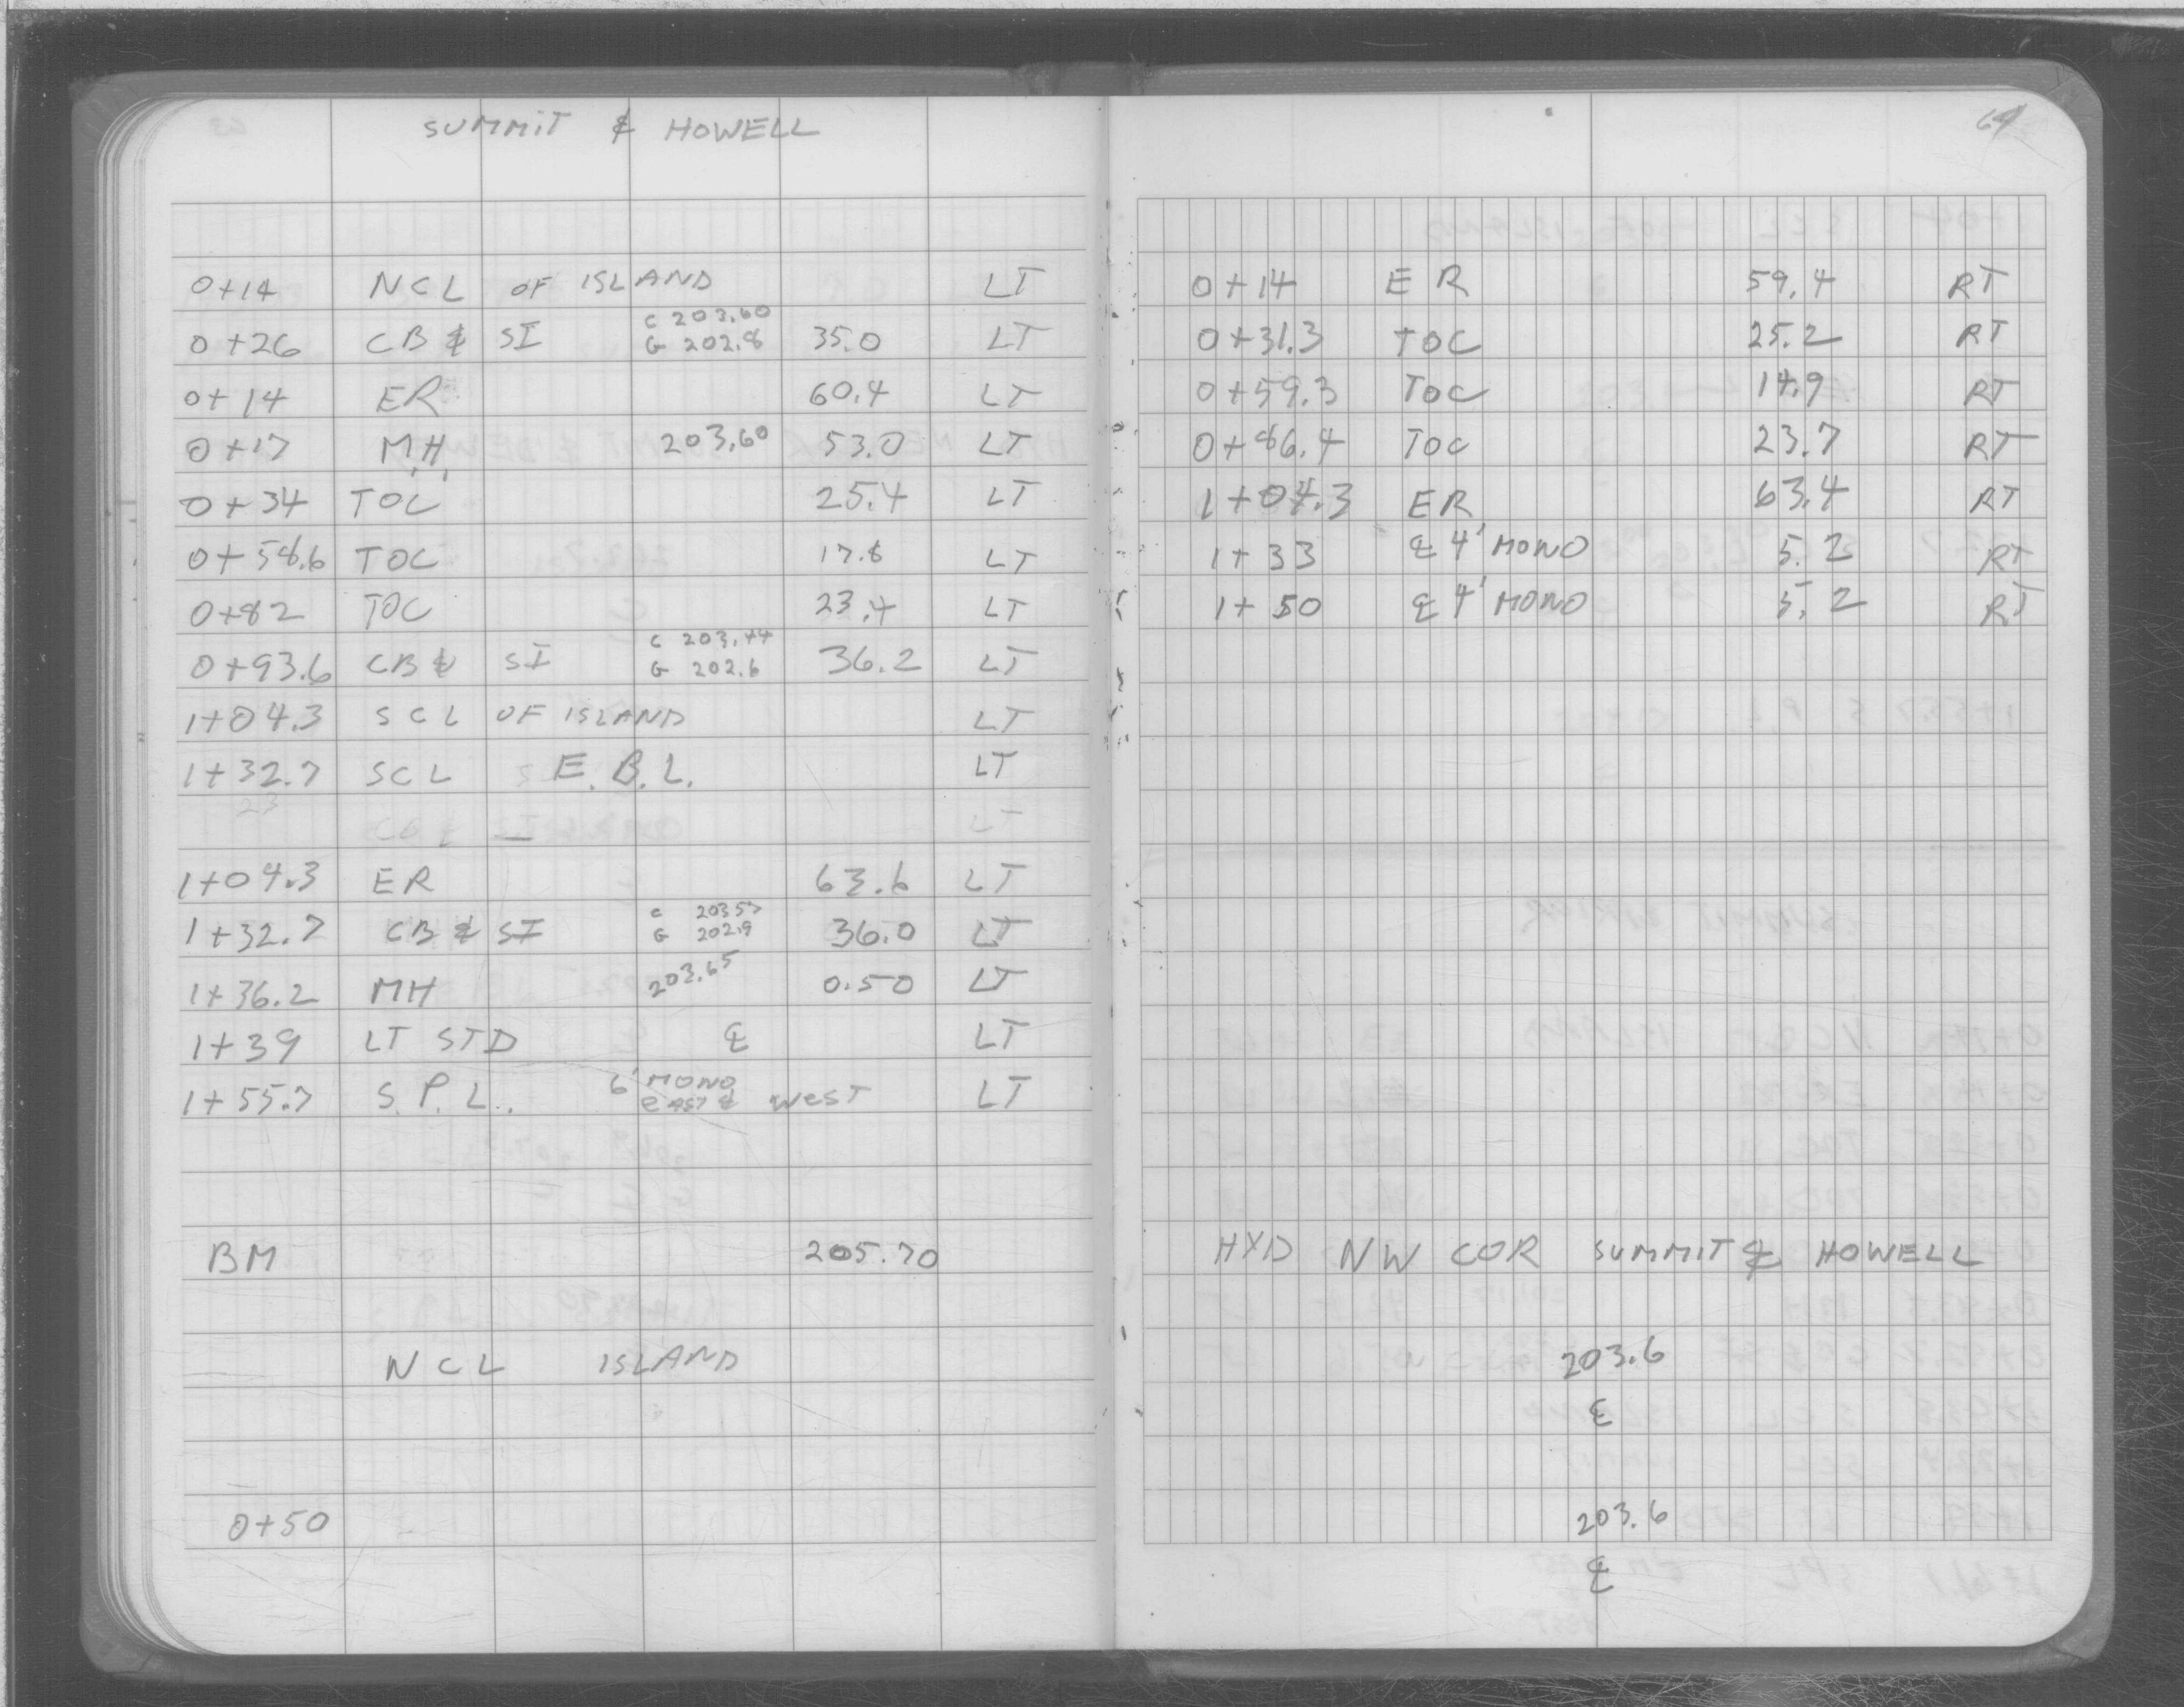 SUMMIT & HOWELL
0+14 NCL OF ISLAND LT
0+26 CB & SI C 203.60 G 202.8 35.0 LT
0+14 ER 60.4 LT
0+17 M.H. 203.60 53.0 LT
0+34 TOC 25.4 LT
0+58.6 TOC 17.8 LT
0+82 TOC 23.4 LT
0+93.6 CB & SI C 203.44 G 202.6 36.2 LT
1+04.3 SCL OF ISLAND LT
1+32.7 SCL E.B.L. LT
1+04.3 ER 63.6 LT
1+32.7 CB & SI C 203.57 G 202.9 36.0 LT
1+36.2 MH 203.65 0.50 LT
1+39 LT STD ℄ LT
1+55.7 S.P.L. 6' MONO EAST & WEST LT
BM 205.70
NCL ISLAND
0+50
64
0+14 ER 59.4 RT
0+31.3 TOC 25.2 RT
0+59.3 TOC 14.9 RT
0+86.4 TOC 23.7 RT
1+04.3 ER 63.4 RT
1+33 ℄ 4' MONO 5.2 RT
1+50 ℄ 4' MONO 5.2 RT
HYD NW COR SUMMIT & HOWELL
203.6
℄
203.6
℄